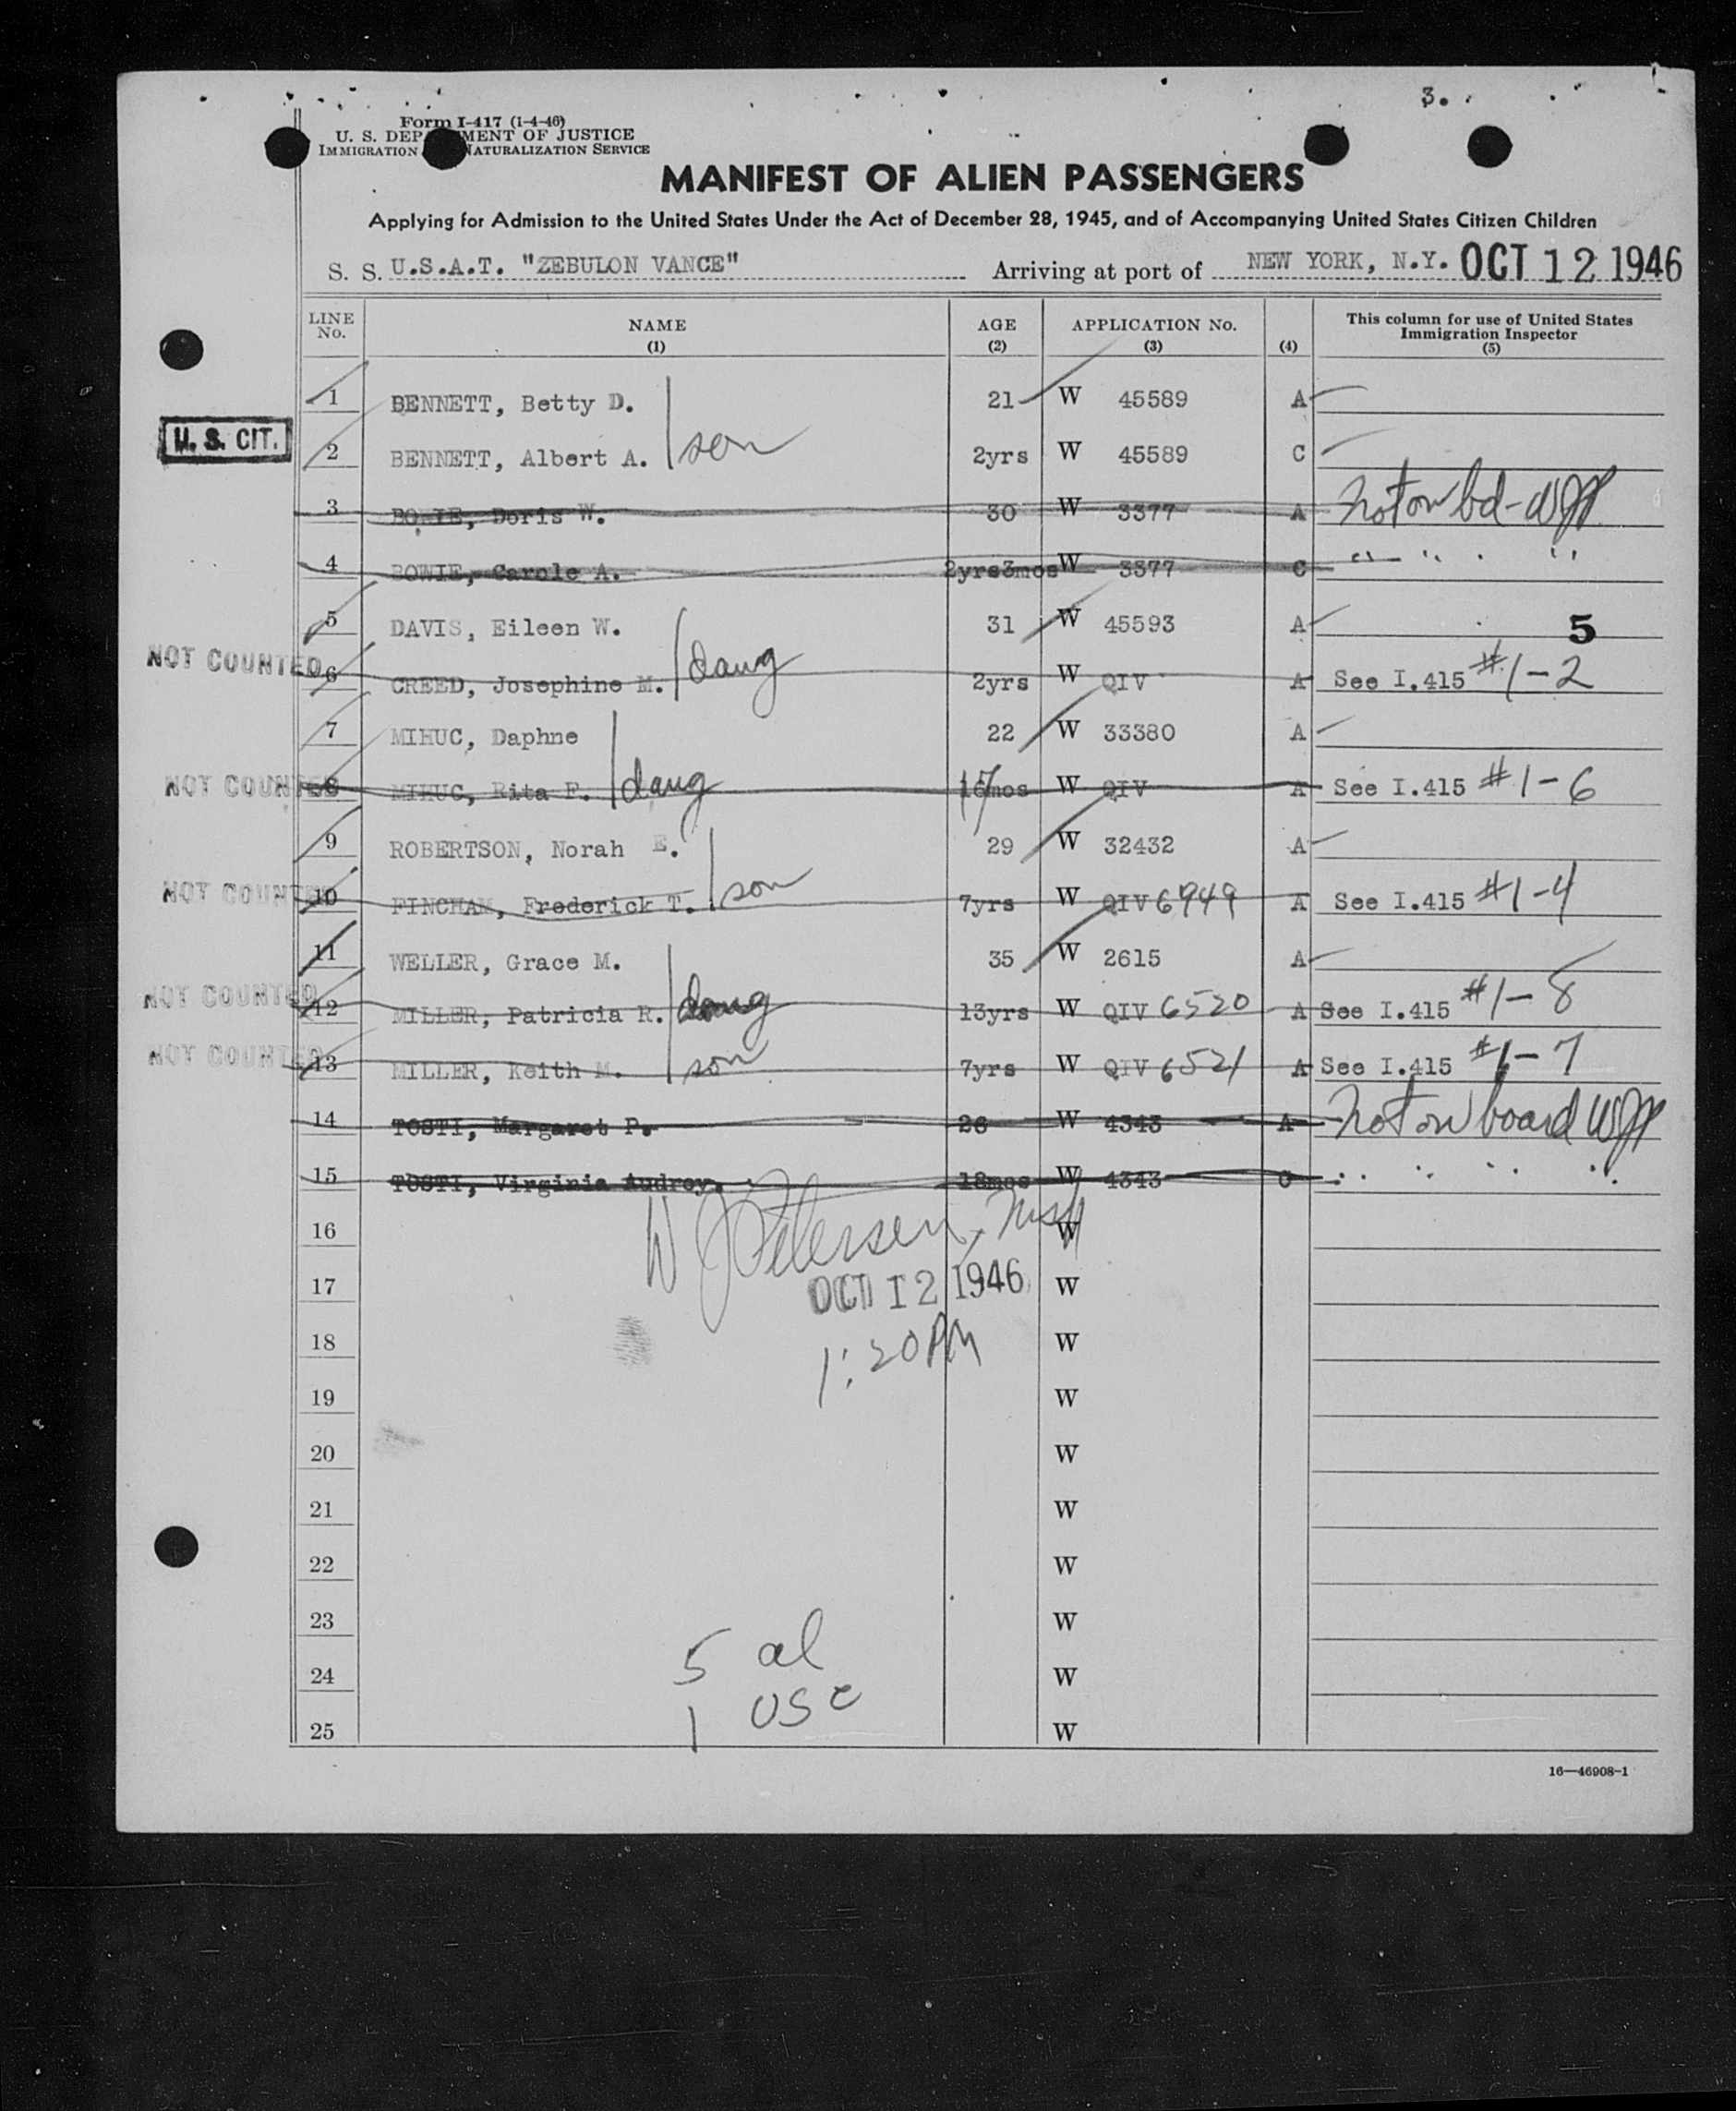 3.
Form I-417 (1-4-46)
U. S. DEP MENT OF JUSTICE
IMMIGRATION NATURALIZATION SERVICE
MANIFEST OF ALIEN PASSENGERS
Applying for Admission to the United States Under the Act of December 28, 1945, and of Accompanying United States Citizen Children
S. S. U.S.A.T. "ZEBULON VANCE" Arriving at port of NEW YORK, N.Y. OCT 12 1946
LINE No. NAME (1) AGE (2) APPLICATION No. (3) (4) This column for use of United States Immigration Inspector (5)
1 BENNETT, Betty D. 21 W 45589 A
U. S. CIT. 2 BENNETT, Albert A. son 2yrs W 45589 C
3 BOWIE, Doris W. 30 W 3377 A not on bd - WJP
4 BOWIE, Carole A. 2yrs3mos W 3377 C " " "
5 DAVIS, Eileen W. 31 W 45593 A 5
NOT COUNTED 6 CREED, Josephine M. daug 2yrs W QIV A See I.415 #1-2
7 MIHUC, Daphne 22 W 33380 A
NOT COUNTED 8 MIHUC, Rita F. daug 17mos W QIV A See I.415 #1-6
9 ROBERTSON, Norah E. 29 W 32432 A
NOT COUNTED 10 FINCHAM, Frederick T. son 7yrs W QIV 6949 A See I.415 #1-4
11 WELLER, Grace M. 35 W 2615 A
NOT COUNTED 12 MILLER, Patricia R. daug 13yrs W QIV 6520 A See I.415 #1-8
NOT COUNTED 13 MILLER, Keith M. son 7yrs W QIV 6521 A See I.415 #1-7
14 TOSTI, Margaret P. 26 W 4343 A not on board WJP
15 TOSTI, Virginia Audrey. 18mos W 4343 C " " " "
16 W J Petersen, W
17 OCT 12 1946 W
18 1:20 PM W
19 W
20 W
21 W
22 W
23 W
24 5 al W
25 1 USC W
16—46908-1